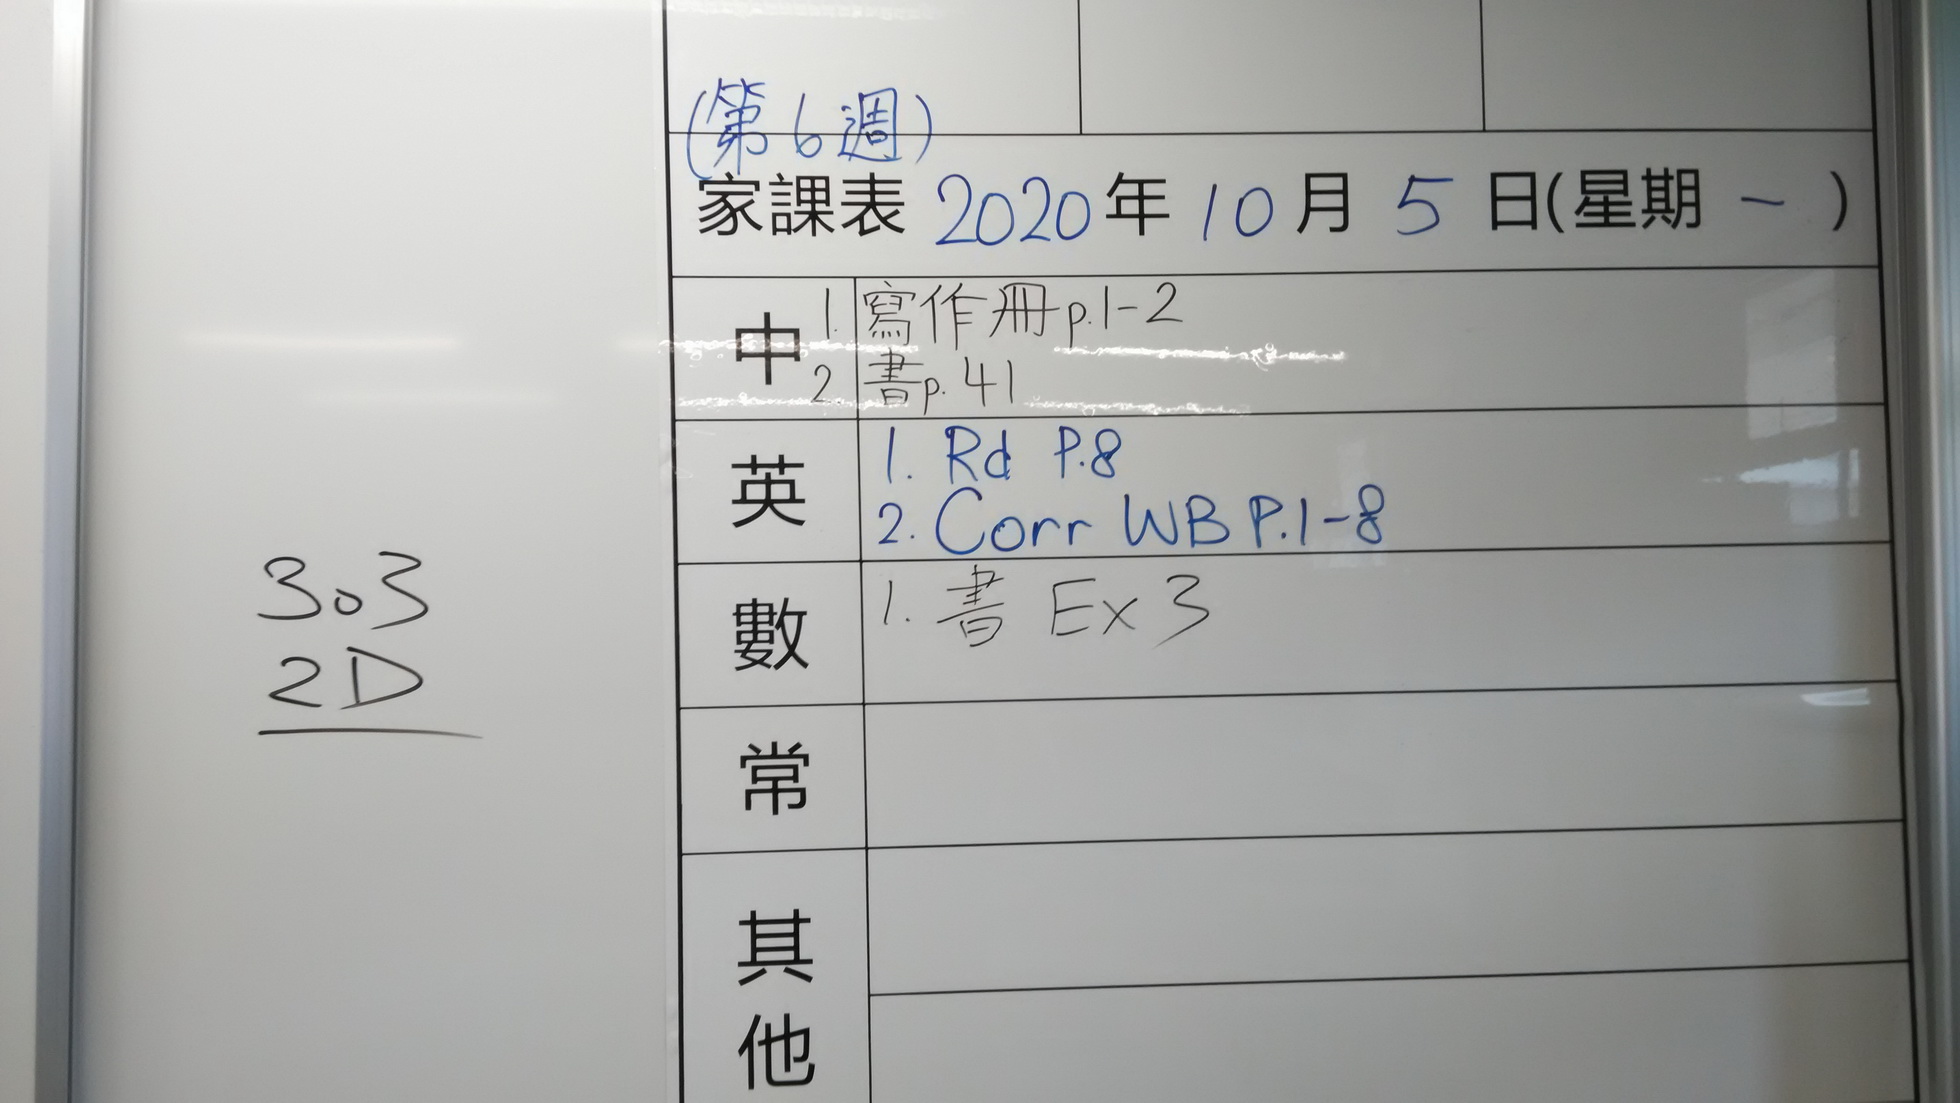 (第6週)
家課表 2020年10月5日(星期一)
中 1. 寫作冊p.1-2
2. 書p.41
英 1. Rd P.8
2. Corr WB P.1-8
數 1. 書 Ex 3
常
其他
303
2D